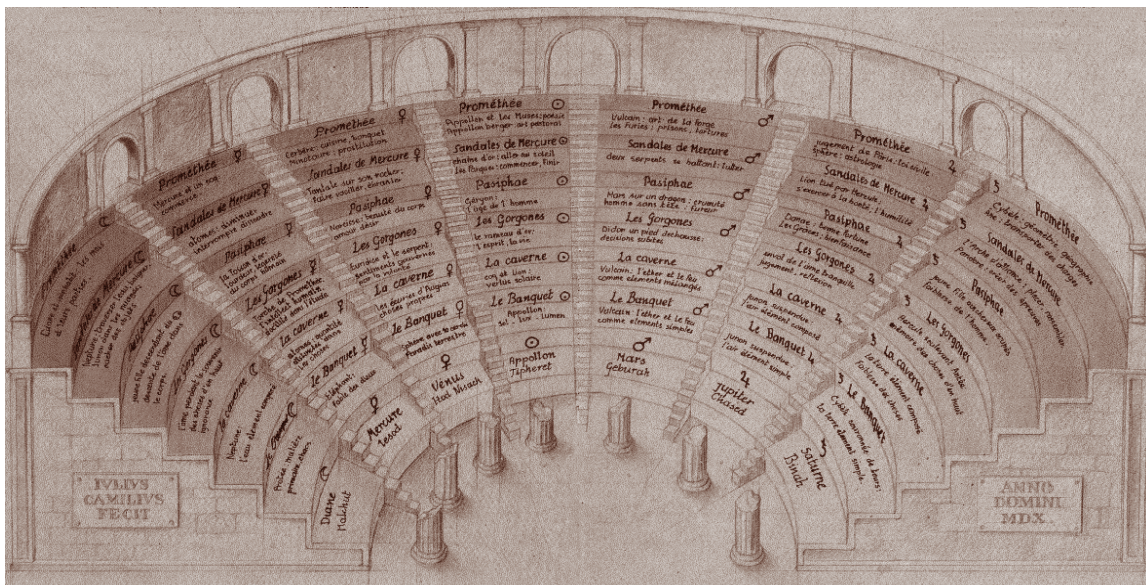 Prométhée
d'leurs parties
Sandales de Mercure
Pasiphae
Les Gorgones
la caverne
Neptune:
l'eau élement composé
le Banquet
Protée: matière
première, chaos
Diane
Malchut
IVLIVS
CAMILIVS
FECIT
Prométhée ☿
Mercure et un coq:
commerce
Sandales de Mercure ☿
Pasiphae ☿
la Toison d'or:
lourdeur, légèreté
du corps humain
Les Gorgones ☿
la caverne ☿
le Banquet ☿
Eléphant:
Mercure
Iesod
Prométhée ♀
Cerbère: cuisine, banquet
Minotaure: prostitution
Sandales de Mercure ♀
Tantale sur son rocher:
faire vaciller, ébranler
Pasiphae ♀
Narcisse: beauté du corps
amour désir
Les Gorgones ♀
Euridice et le serpent:
Sentiments gouvernés
par la volonté
La caverne ♀
les écuries d'Augias
choses propres
le Banquet ♀
Paradis terrestre
♀
Vénus
Hod Nisach
Prométhée ☉
Appollon et les Muses: poésie
Appollon berger: art pastoral
Sandales de Mercure ☉
chaine d'or: aller au soleil
les Parques: commencer, finir
Pasiphae ☉
Gorgon:
l'age de l'homme
Les Gorgones ☉
le rameau d'or:
l'esprit, la vie
La caverne ☉
coq et lion:
vertus solaire
Le Banquet ☉
Appollon:
sol - lux - lumen
☉
Appollon
Tipheret
Prométhée ♂
Vulcain: art de la forge
les Furies: prisons, tortures
Sandales de Mercure ♂
deux serpents se battant: lutter
Pasiphae ♂
Mars sur un dragon: cruauté
homme sans tête: fureur
Les Gorgones ♂
Didon un pied déchaussé:
décisions subites
La caverne ♂
Vulcain: l'ether et le feu
comme elements mélangés
Le Banquet ♂
Vulcain: l'ether et le feu
comme elements simples
♂
Mars
Geburah
Prométhée ♃
jugement de Pâris: loi civile
Sphère: astrologie
Sandales de Mercure ♃
Lion tué par Hercule:
s'exercer à la bonté, l'humilité
Pasiphae ♃
Danae: bonne fortune
Les Graces: bienfaisance
Les Gorgones ♃
envol de l'âme tranquille
jugement, reflexion
La caverne ♃
Junon suspendue
l'air élément composé
Le Banquet ♃
Junon suspendue
l'air élément simple
♃
Jupiter
Chased
Prométhée
Cybèle: géométrie, géographie
âne à transporter des charges
Sandales de Mercure
Pandore: créer des oppressions
Pasiphae
faiblesse de l'homme
Les Gorgones
Hercule soulevant Antée
La caverne
la terre élément composé
Le Banquet
Cybèle couronnée de tours:
la terre élément simple
Saturne
Binah
ANNO
DOMINI
MDX